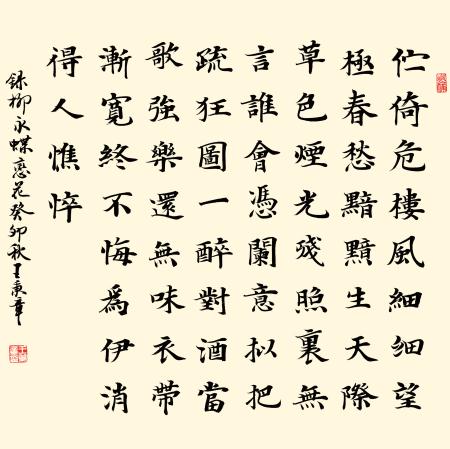 伫倚危樓風細細望
極春愁黯黯生天際
草色煙光殘照裏無
言誰會憑闌意拟把
疏狂圖一醉對酒當
歌強樂還無味衣帶
漸寬終不悔爲伊消
得人憔悴
錄柳永蝶戀花癸卯秋王章